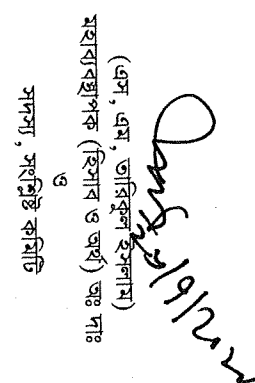 (এম, এম, তারিকুল ইসলাম)
মহাব্যবস্থাপক (হিসাব ও অর্থ) অঃ দাঃ
ও
সদস্য, সংশ্লিষ্ট কমিটি